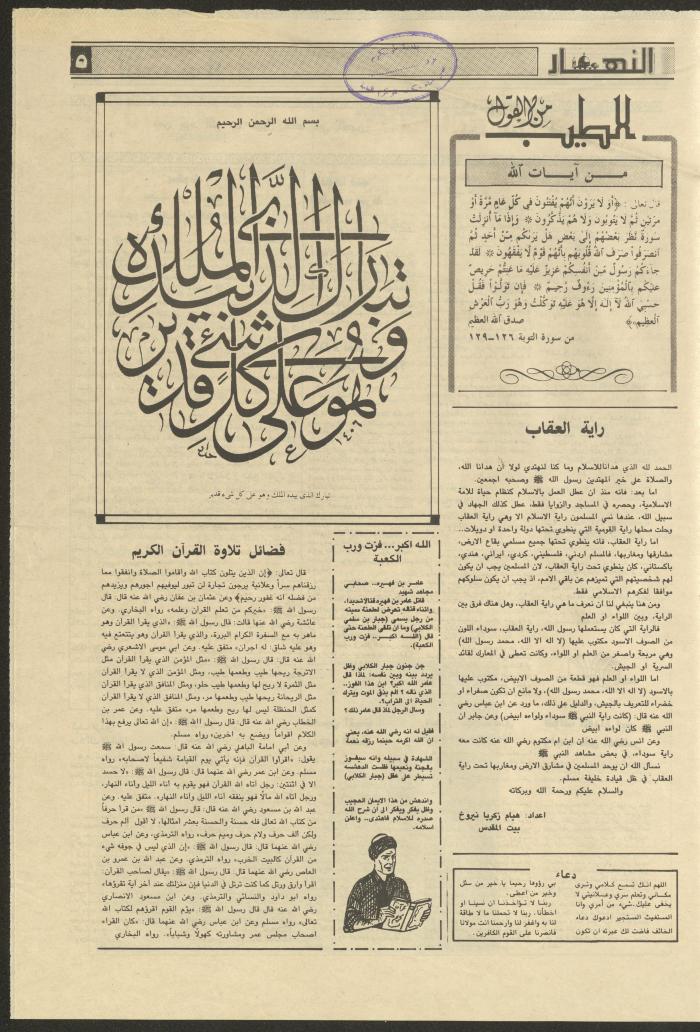 النهار
٥
من القول
الطيب
من آيات الله
قال تعالى : ﴿أو لا يرون أنهم يفتنون في كل عام مرة أو
مرتين ثم لا يتوبون ولا هم يذكرون * وإذا ما أنزلت
سورة نظر بعضهم إلى بعض هل يرنكم من أحد ثم
انصرفوا صرف الله قلوبهم بأنهم قوم لا يفقهون * لقد
جاءكم رسول من أنفسكم عزيز عليه ما عنتم حريص
عليكم بالمؤمنين رءوف رحيم * فإن تولوا فقل
حسبي الله لا إله إلا هو عليه توكلت وهو رب العرش
العظيم﴾ صدق الله العظيم
من سورة التوبة ١٢٦-١٢٩
راية العقاب
الحمد لله الذي هداناللاسلام وما كنا لنهتدي لولا أن هدانا الله،
والصلاة على خير المهتدين رسول الله ﷺ وصحبه اجمعين.
اما بعد: فانه منذ ان عطل العمل بالاسلام كنظام حياة للامة
الاسلامية، وحصره في المساجد والزوايا فقط، عطل كذلك الجهاد في
سبيل الله، عندها نسي المسلمون راية الاسلام الا وهي راية العقاب
وحلت محلها راية القومية التي ينطوي تحتها دولة واحدة او دويلات...
اما راية العقاب، فانه ينطوي تحتها جميع مسلمي بقاع الارض،
مشارقها ومغاربها، فالمسلم اردني، فلسطيني، كردي، ايراني، هندي،
باكستاني، كان ينطوي تحت راية العقاب، لان المسلمين يجب ان يكون
لهم شخصيتهم التي تميزهم عن باقي الامم، اذ يجب ان يكون سلوكهم
موافقا لفكرهم الاسلامي فقط.
ومن هنا ينبغي لنا ان نعرف ما هي راية العقاب، وهل هناك فرق بين
الراية، وبين اللواء او العلم
فالراية التي كان يستعملها رسول الله، راية العقاب، سوداء اللون
من الصوف الاسود مكتوب عليها (لا اله الا الله، محمد رسول الله)
وهي مربعة واصغر من العلم او اللواء، وكانت تعطى في المعارك لقائد
السرية او الجيش.
اما اللواء او العلم فهو قطعة من الصوف الابيض، مكتوب عليها
بالاسود (لا اله الا الله، محمد رسول الله)، ولا مانع ان تكون صفراء او
خضراء للتعريف بالجيش، والدليل على ذلك، ما ورد عن ابن عباس رضي
الله عنه قال: (كانت راية النبي ﷺ سوداء ولواءه ابيض) وعن جابر ان
النبي ﷺ كان لواءه ابيض
وعن انس رضي الله عنه ان ابن ام مكتوم رضي الله عنه كانت معه
راية سوداء، في بعض مشاهد النبي ﷺ
نسال الله ان يوحد المسلمين في مشارق الارض ومغاربها تحت راية
العقاب في ظل قيادة خليفة مسلم.
والسلام عليكم ورحمة الله وبركاته
اعداد: هيام زكريا نيروخ
بيت المقدس
دعاء
اللهم انك تسمع كلامي وترى
مكاني وتعلم سري وعلانيتي لا
يخفى عليك شيء من أمري وانا
المستغيث المستجير ادعوك دعاء
الخائف فاضت لك عبرته ان تكون
بي رؤوفا رحيما يا خير من سئل
وخير من اعطى.
ربنا لا تؤاخذنا ان نسينا او
اخطأنا. ربنا لا تحملنا ما لا طاقة
لنا به واغفر لنا وارحمنا انت مولانا
فانصرنا على القوم الكافرين.
بسم الله الرحمن الرحيم
تبارك الذي بيده الملك
وهو على كل شيء قدير
١٤٠٦
تبارك الذي بيده الملك وهو على كل شيء قدير
الله اكبر...فزت ورب
الكعبة
عامر بن فهيره.. صحابي
مجاهد شهيد
قاتل عامر بن فهيره قتالاشديدا،
واثناء قتاله تعرض لطعنة مميته
من رجل يسمى (جبار بن سلمى
الكلابي) وما ان تلقى الطعنة حتى
قال (الله اكبر.. فزت ورب
الكعبة).
جن جنون جبار الكلابي وظل
يردد بينه وبين نفسه: لماذا قال
عامر الله اكبر؟ اين هذا الفوز..
الذي ناله ؟ الم يذق الموت ويترك
الحياة الى التراب؟.
وسال الرجل لماذا قال عامر ذلك؟
فقيل له انه رضى الله عنه، يعني
ان الله اكرمه حينما رزقه نعمة
الشهادة في سبيله وانه سيفوز
بالجنة ونعيمها فظلت الدهشه
تسيطر على عقل (جبار الكلابي)
واندهش من هذا الايمان العجيب
وظل يفكر ويفكر الى ان شرح الله
صدره للاسلام فاهتدى.. واعلن
اسلامه.
فضائل تلاوة القرآن الكريم
قال تعالى: ﴿إن الذين يتلون كتاب الله واقاموا الصلاة وانفقوا مما
رزقناهم سراً وعلانية يرجون تجارة لن تبور ليوفيهم اجورهم ويزيدهم
من فضله انه غفور رحيم﴾ وعن عثمان بن عفان رضي الله عنه قال: قال
رسول الله ﷺ: «خيركم من تعلم القرآن وعلمه» رواه البخاري. وعن
عائشة رضي الله عنها قالت: قال رسول الله ﷺ، «الذي يقرأ القرآن وهو
ماهر به مع السفرة الكرام البررة، والذي يقرأ القرآن وهو يتتعتع فيه
وهو عليه شاق: له اجران»، متفق عليه. وعن ابي موسى الاشعري رضي
الله عنه قال: قال رسول الله ﷺ، «مثل المؤمن الذي يقرأ القرآن مثل
الاترجة ريحها طيب وطعمها طيب، ومثل المؤمن الذي لا يقرأ القرآن
مثل الثمرة لا ريح لها وطعمها طيب حلو، ومثل المنافق الذي يقرأ القرآن
مثل الريحانة ريحها طيب وطعمها مر، ومثل المنافق الذي لا يقرأ القرآن
كمثل الحنظلة ليس لها ريح وطعمها مر» متفق عليه. وعن عمر بن
الخطاب رضي الله عنه قال: قال رسول الله ﷺ، «إن الله تعالى يرفع بهذا
الكلام اقواماً ويضع به اخرين»، رواه مسلم.
وعن ابي امامة الباهلي رضي الله عنه قال: سمعت رسول الله ﷺ
يقول، «اقرأوا القرآن فإنه يأتي يوم القيامة شفيعاً لاصحابه»، رواه
مسلم. وعن ابن عمر رضي الله عنهما قال: قال رسول الله ﷺ: «لا حسد
الا في اثنتين: رجل آتاه الله القرآن فهو يقوم به آناء الليل وآناء النهار،
ورجل آتاه الله مالا فهو ينفقه آناء الليل وآناء النهار»، متفق عليه. وعن
عبد الله بن مسعود رضي الله عنه قال: قال رسول الله ﷺ، «من قرأ حرفاً
من كتاب الله تعالى فله حسنة والحسنة بعشر امثالها، لا اقول ألم حرف
ولكن ألف حرف ولام حرف وميم حرف»، رواه الترمذي. وعن ابن عباس
رضي الله عنهما قال: قال رسول الله ﷺ: «إن الذي ليس في جوفه شيء
من القرآن كالبيت الخرب» رواه الترمذي. وعن عبد الله بن عمرو بن
العاص رضي الله عنهما قال: قال رسول الله ﷺ: «يقال لصاحب القرآن:
اقرأ وارق ورتل كما كنت ترتل في الدنيا فإن منزلتك عند آخر آية تقرؤها»
رواه ابو داود والنسائي والترمذي. وعن ابن مسعود الانصاري
رضي الله عنه قال قال رسول الله ﷺ: «يؤم القوم اقرؤهم لكتاب الله
تعالى» رواه مسلم وعن ابن عباس رضي الله عنهما قال: «كان القراء
اصحاب مجلس عمر ومشاورته كهولا وشباباً»، رواه البخاري